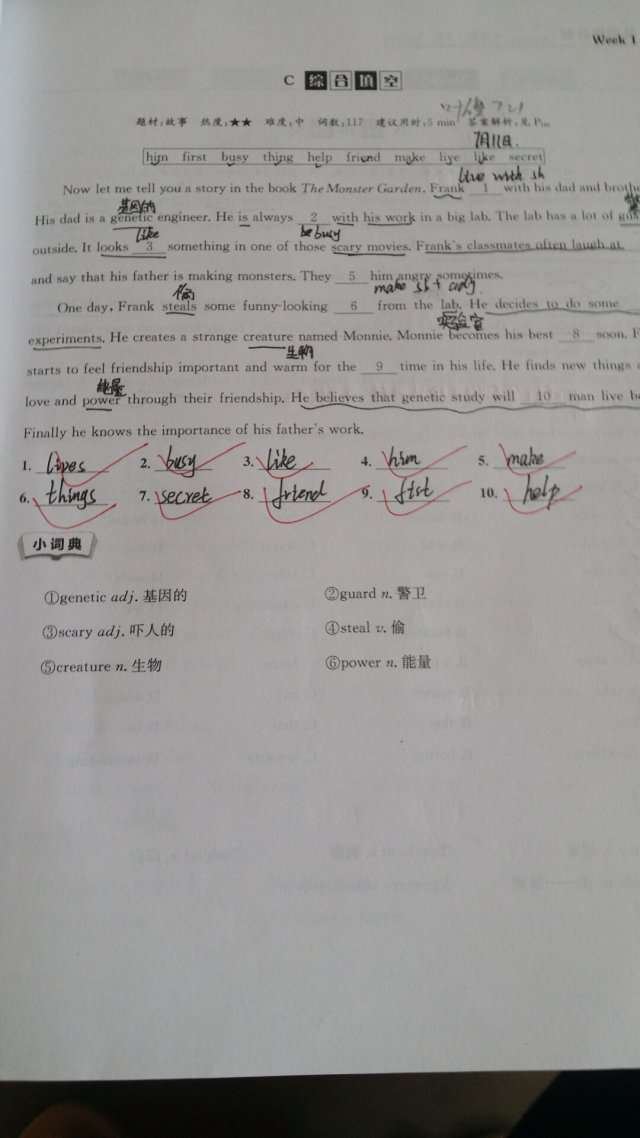 Week 1
C 综合填空
题材:故事 热度:★★ 难度:中 词数:117 建议用时:5 min 答案解析:见 P
7月11日.
him first busy thing help friend make live like secret
live with sb
Now let me tell you a story in the book The Monster Garden. Frank 1 with his dad and brothe
基因的
His dad is a genetic engineer. He is always 2 with his work in a big lab. The lab has a lot of gua
like be busy
outside. It looks 3 something in one of those scary movies. Frank's classmates often laugh at
and say that his father is making monsters. They 5 him angry sometimes.
偷 make sb + adj.
One day, Frank steals some funny-looking 6 from the lab. He decides to do some
实验室
experiments. He creates a strange creature named Monnie. Monnie becomes his best 8 soon. F
生物
starts to feel friendship important and warm for the 9 time in his life. He finds new things a
能量
love and power through their friendship. He believes that genetic study will 10 man live be
Finally he knows the importance of his father's work.
1. lives 2. busy 3. like 4. him 5. make
6. things 7. secret 8. friend 9. fist 10. help
小词典
①genetic adj. 基因的 ②guard n. 警卫
③scary adj. 吓人的 ④steal v. 偷
⑤creature n. 生物 ⑥power n. 能量